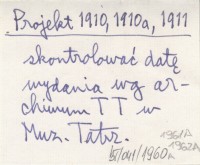 Projekt 1910, 1910a, 1911
skontrolować datę
wydania wg ar-
chiwum TT w
Muz. Tatrz.
1961A
1962A
/1960a